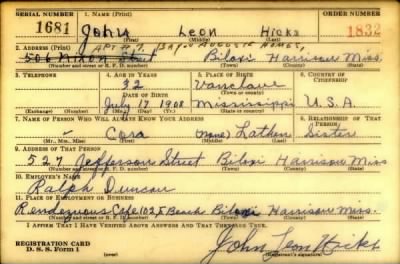 SERIAL NUMBER 1. NAME (Print) ORDER NUMBER
1681 John Leon Hicks 1832
(First) (Middle) (Last)
2. ADDRESS (Print) APT # 7, BAYOU AUGUSTE HOMES,
506 Nixon Street Biloxi Harrison Miss.
(Number and street or R. F. D. number) (Town) (County) (State)
3. TELEPHONE 4. AGE IN YEARS 5. PLACE OF BIRTH 6. COUNTRY OF CITIZENSHIP
32 Vancleave
DATE OF BIRTH (Town or county)
July 17 1908 Mississippi U.S.A.
(Exchange) (Number) (Mo.) (Day) (Yr.) (State or country)
7. NAME OF PERSON WHO WILL ALWAYS KNOW YOUR ADDRESS 8. RELATIONSHIP OF THAT PERSON
Cora (none) Lathen Sister
(Mr., Mrs., Miss) (First) (Middle) (Last)
9. ADDRESS OF THAT PERSON
527 Jefferson Street Biloxi Harrison Miss
(Number and street or R. F. D. number) (Town) (County) (State)
10. EMPLOYER'S NAME
Ralph Duncan
11. PLACE OF EMPLOYMENT OR BUSINESS
Rendezvous Cafe 102 E Beach Biloxi Harrison Miss.
(Number and street or R. F. D. number) (Town) (County) (State)
I AFFIRM THAT I HAVE VERIFIED ABOVE ANSWERS AND THAT THEY ARE TRUE.
REGISTRATION CARD
D. S. S. Form 1 (over) John Leon Hicks
(Registrant's signature)